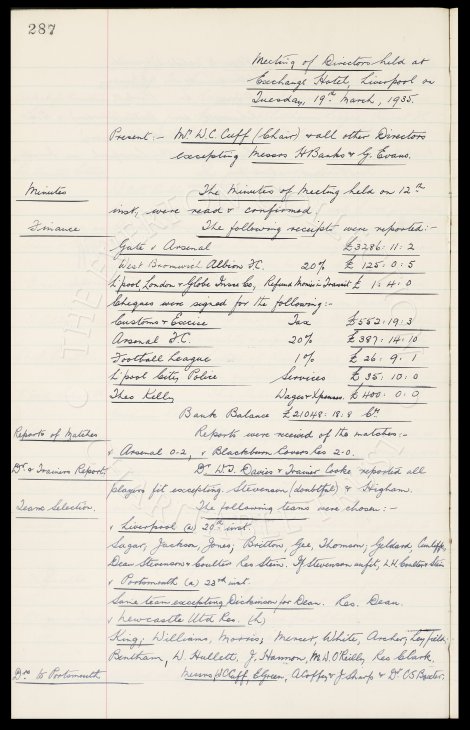 287
Meeting of Directors held at
Exchange Hotel, Liverpool on
Tuesday, 19th March, 1935.
Present:- Mr W.C. Cuff (Chair) & all other Directors
excepting Messrs H Banks & G. Evans.
Minutes The Minutes of Meeting held on 12th
inst, were read & confirmed.
Finance The following receipts were reported:-
Gate v Arsenal £3286: 11: 2
West Bromwich Albion F.C. 20% £ 125: 0: 5
L'pool London & Globe Insce Co, Refund Monies in Transit £ 1: 4: 0
Cheques were signed for the following:-
Customs & Excise Tax £552: 19: 3
Arsenal F.C. 20% £387: 14: 10
Football League 1% £ 26: 9: 1
L'pool City Police Services £ 35: 10: 0
Theo Kelly Wages & Xpenses £400: 0: 0
Bank Balance £21048: 18: 8 Cr
Reports of Matches Reports were received of the matches:-
v Arsenal 0-2, v Blackburn Rovers Res 2-0.
Dr & Trainers Report. Dr. W.J. Davies & Trainer Cooke reported all
players fit excepting Stevenson (doubtful) & Higham.
Team Selection. The following teams were chosen:-
v Liverpool (a) 20th inst.
Sagar, Jackson, Jones; Britton, Gee, Thomson; Geldard, Cunliffe,
Dean Stevenson & Coulter Res Stein. If Stevenson unfit, L.H. Coulter Stein
v Portsmouth (a) 23rd inst.
Same team excepting Dickinson for Dean. Res. Dean.
v Newcastle Utd Res. (h)
King; Williams, Morris; Mercer, White, Archer; Leyfield,
Bentham, W. Hullett, J. Hannon, M.W. O'Reilly, Res Clark.
Drs to Portsmouth. Messrs, W.C. Cuff, E. Green, A Coffey & J Sharp & Dr C.S. Baxter.